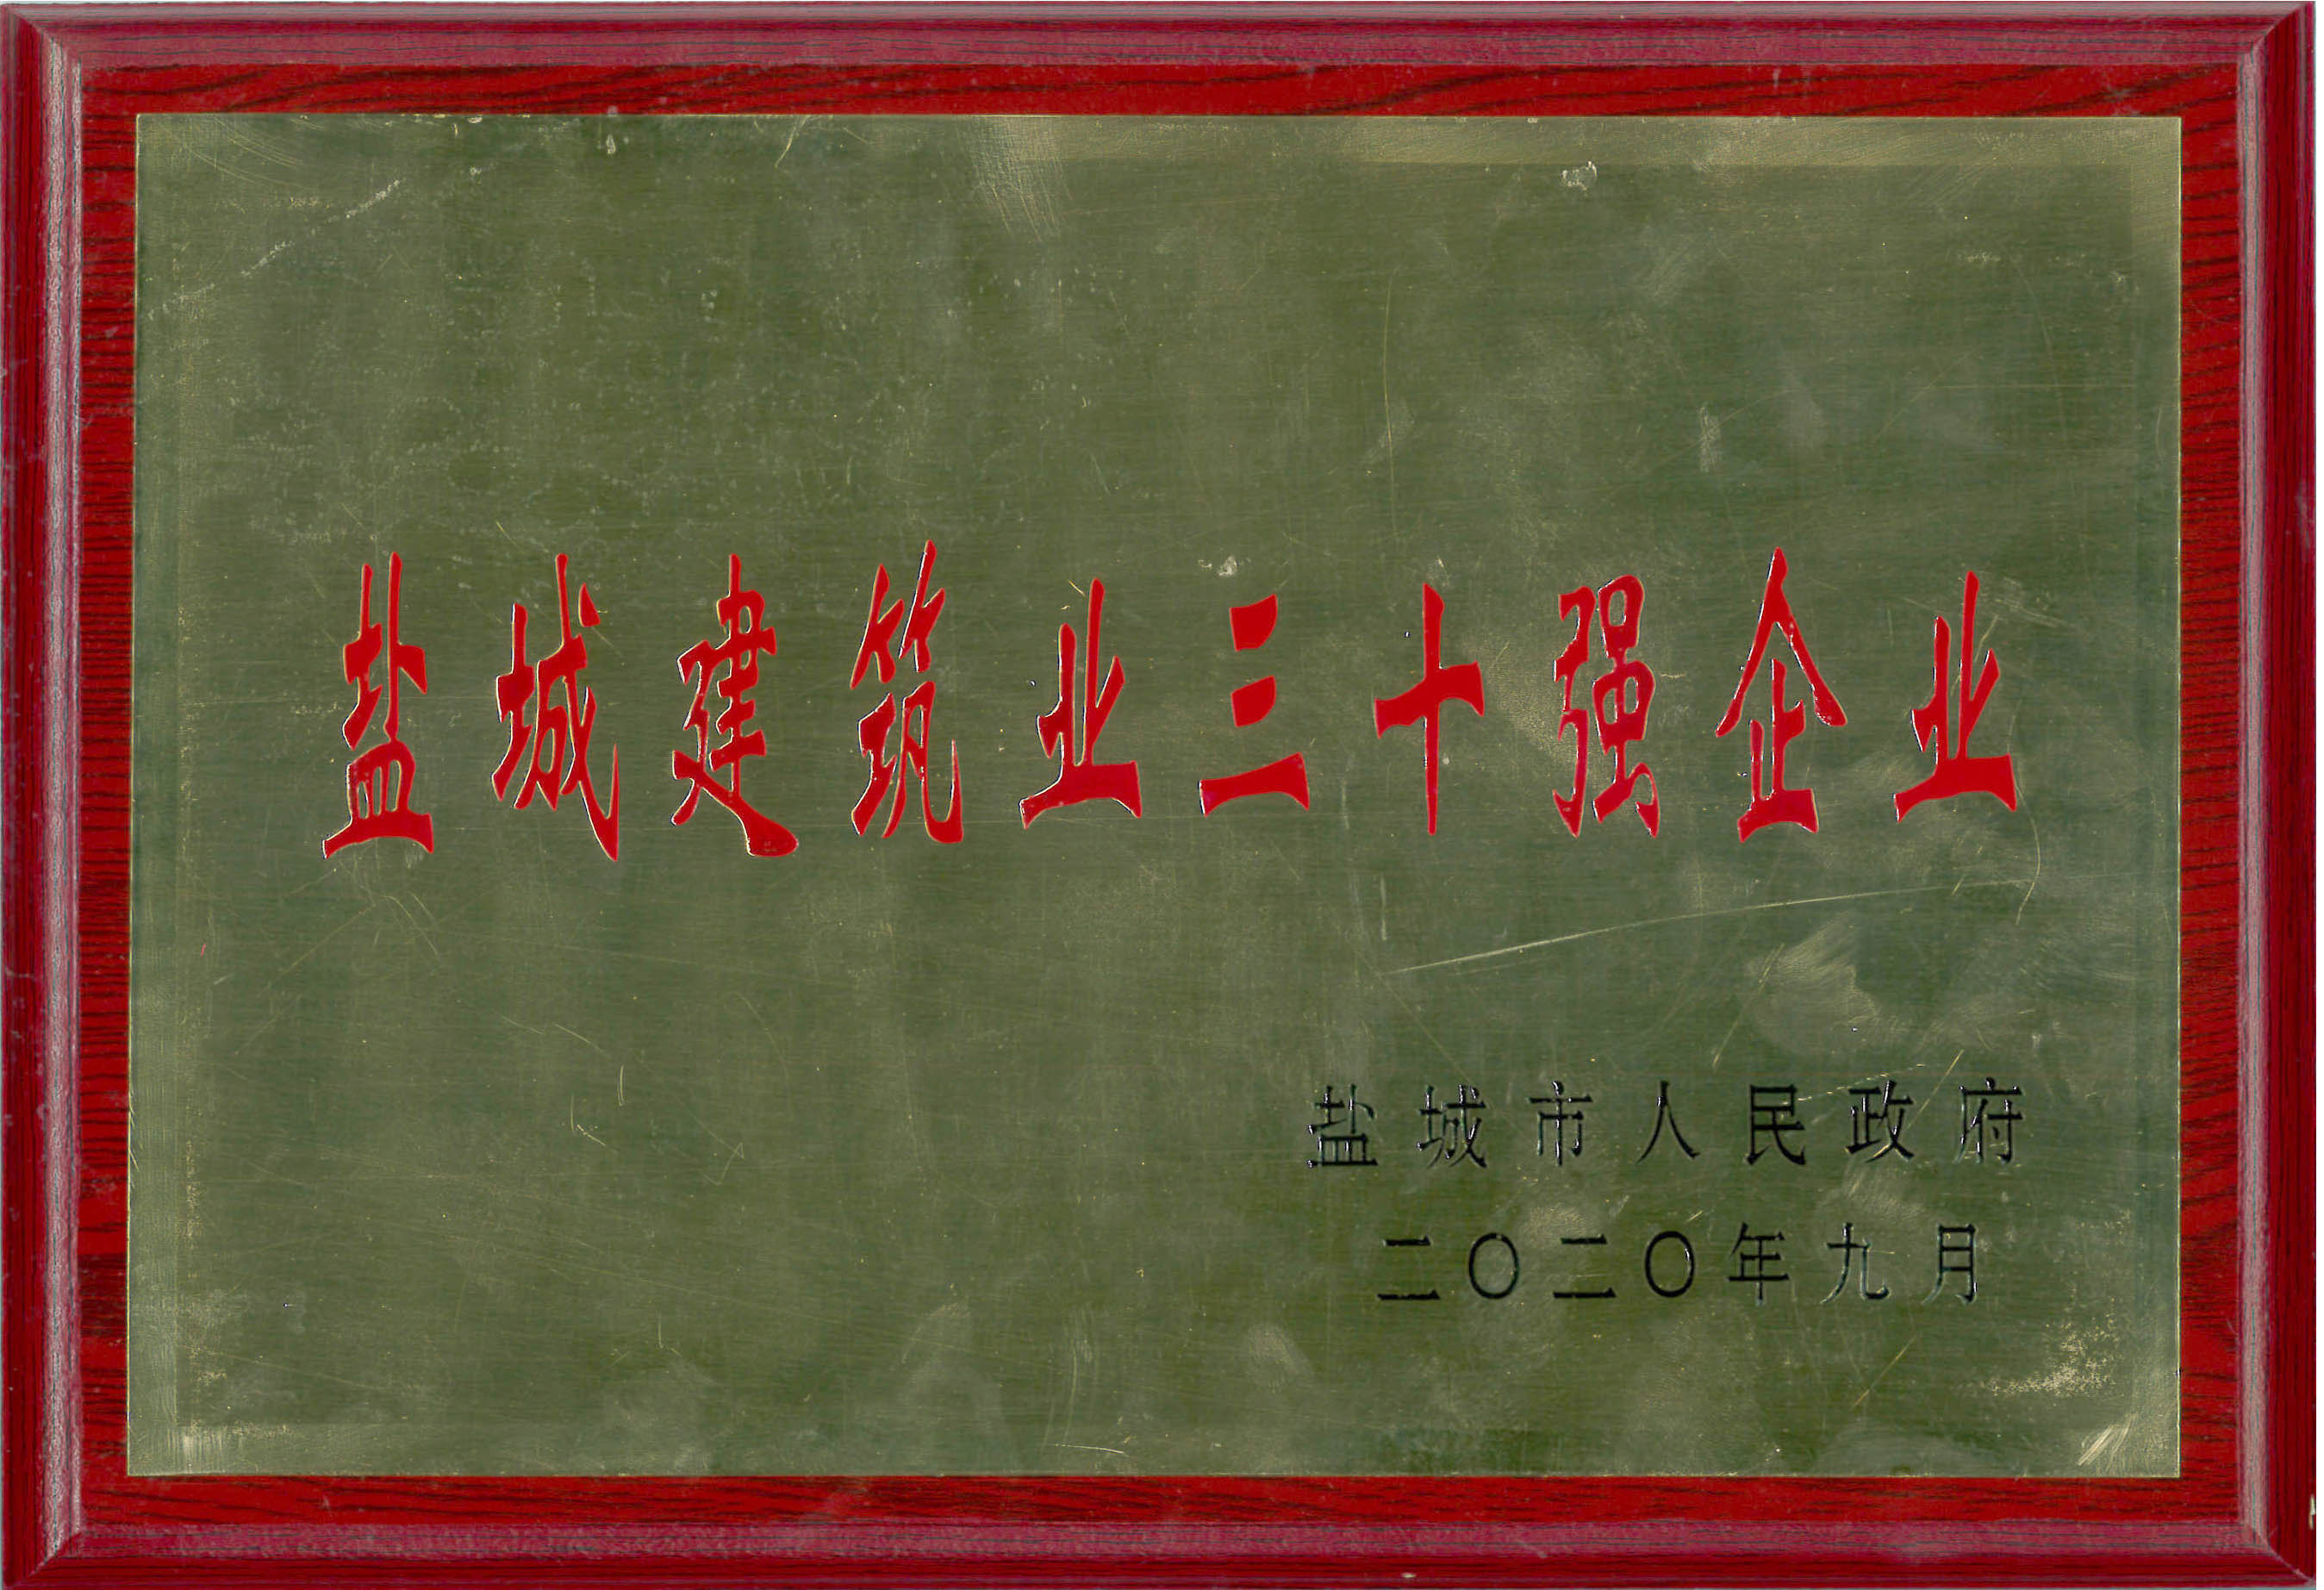 盐城建筑业三十强企业
盐城市人民政府
二〇二〇年九月